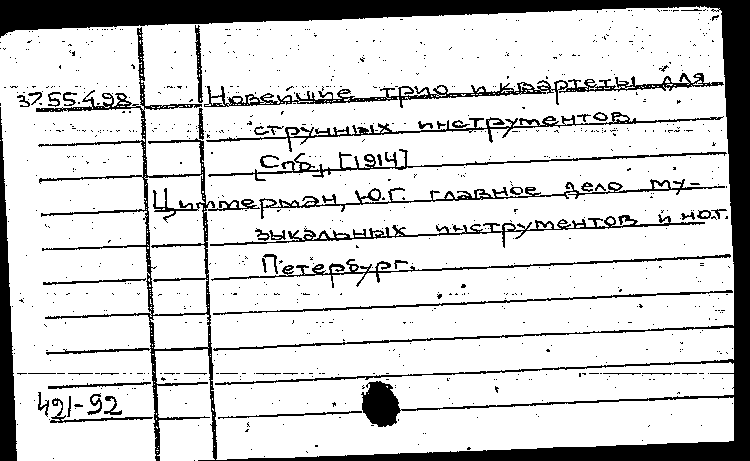 37.55.4.98 Новейшие трио и квартеты для
струнных инструментов.
[Спб.], [1914]
Циммерман, Ю.Г. главное депо му-
зыкальных инструментов и нот.
Петербург.
421-92